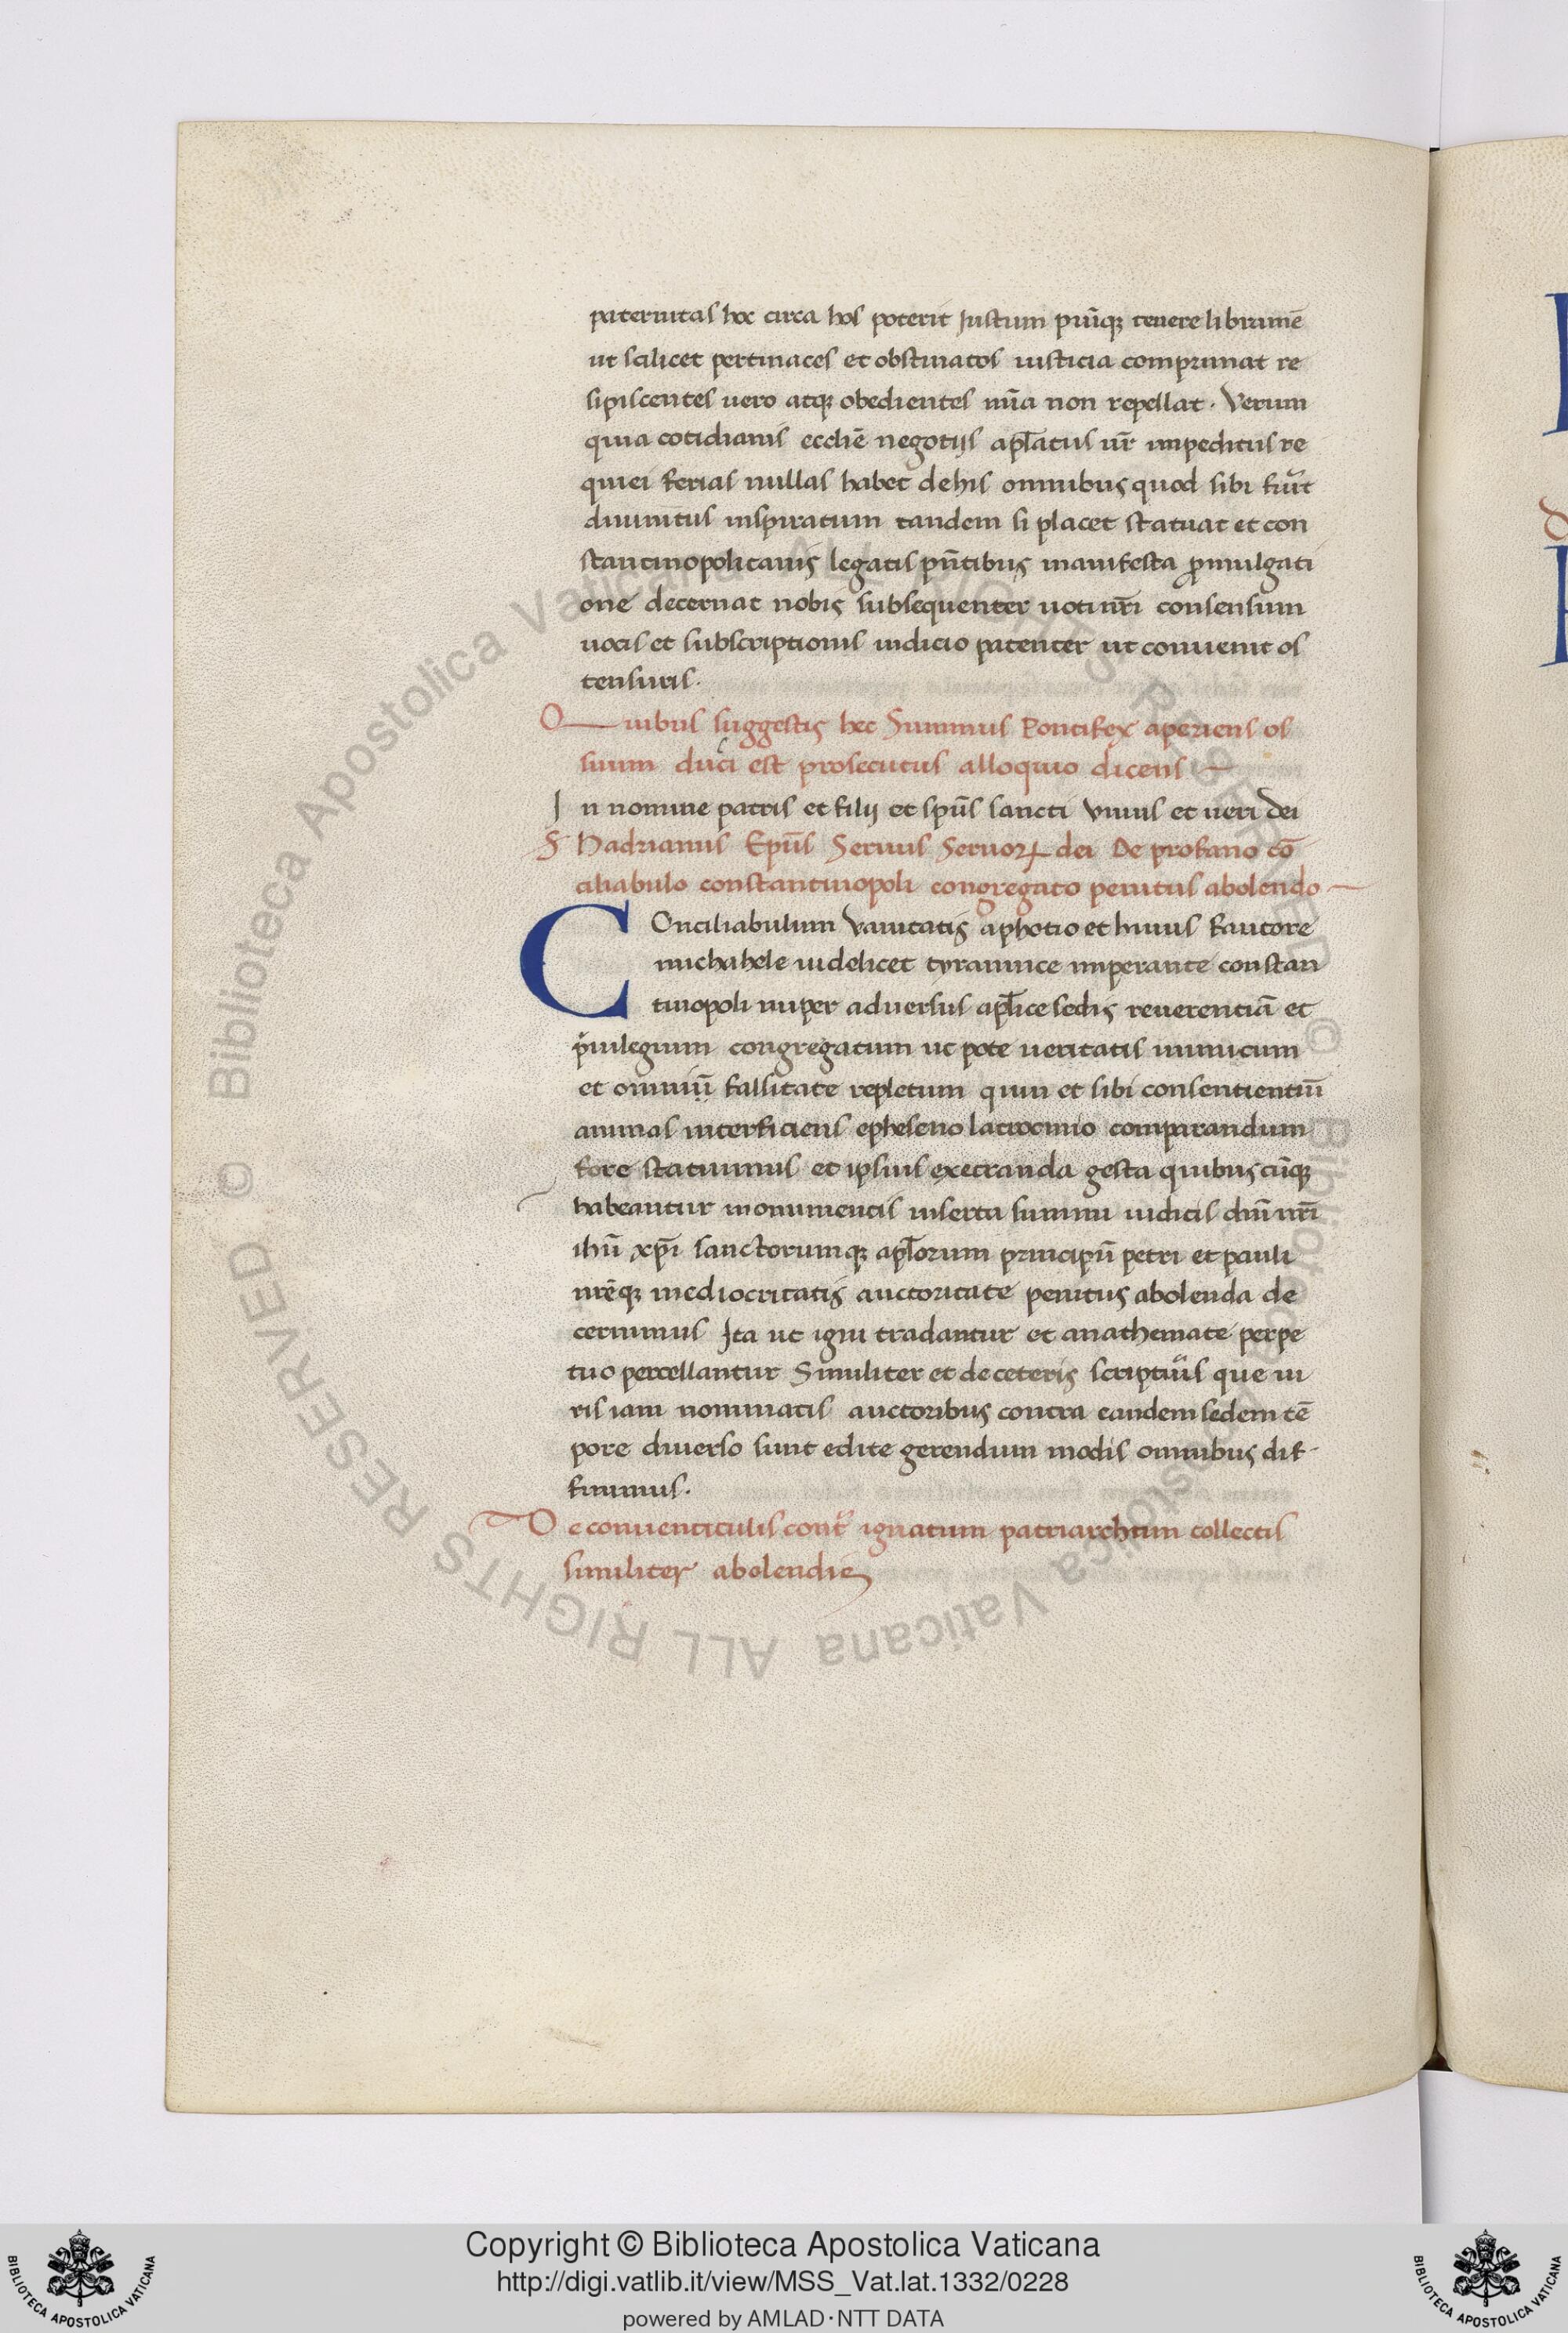 paternitas hoc circa hos poterit Justum piũq; tenere libramẽ
ut scilicet pertinaces et obstinatos iusticia comprimat re
sipiscentes uero atq; obedientes mĩa non repellat. Verum
quia cotidianis ecclẽ negotijs apl̃atus ur̃ impeditus re
quiei ferias nullas habet de his omnibus quod sibi fuerit
diuinitus inspiratum tandem si placet statuat et con
stantinopolitanis legatis pñtibus manifesta promulgati
one decernat nobis subsequenter uoti nr̃i consensum
uocis et subscriptionis indicio patenter ut conuenit os
tensuris.
Quibus suggestis hec Summus Pontifex aperiens os
suum duci est prosecutus alloquio dicens
In nomine patris et filij et spũs sancti Vnius et ueri dei
§ Hadrianus Epũs Seruus Seruoꝝ dei De profano cõ
ciliabulo constantinopoli congregato penitus abolendo
COnciliabulum Vanitatis aphotio et huius fautore
michahele uidelicet tyrannice imperante constan
tinopoli nuper aduersus apl̃ice sedis reuerentiã et
priuilegium congregatum ut pote ueritatis inimicum
et omniũ fallitate repletum quin et sibi consentientiũ
animas interficiens epheseno latrocinio comparandum
fore statuimus et ipsius execranda gesta quibus cũq;
habeantur monumentis inserta summi iudicis dñi nr̃i
ihũ xp̃i sanctorumq; apl̃orum principũ petri et pauli
nrẽq; mediocritatis auctoritate penitus abolenda de
cernimus Ita ut igni tradantur et anathemate perpe
tuo percellantur Similiter et de ceteris scriptu̾is que ui
ris iam nominatis auctoribus contra eandem sedem tẽ
pore diuerso sunt edite gerendum modis omnibus dif-
finimus.
De conuenticulis cont̾ ignatum patriarcham collectis
similiter abolendis
© Biblioteca Apostolica Vaticana ALL RIGHTS RESERVED © Biblioteca Apostolica Vaticana ALL RIGHTS RESERVED
Copyright © Biblioteca Apostolica Vaticana
http://digi.vatlib.it/view/MSS_Vat.lat.1332/0228
powered by AMLAD·NTT DATA
BIBLIOTECA APOSTOLICA VATICANA
BIBLIOTECA APOSTOLICA VATICANA